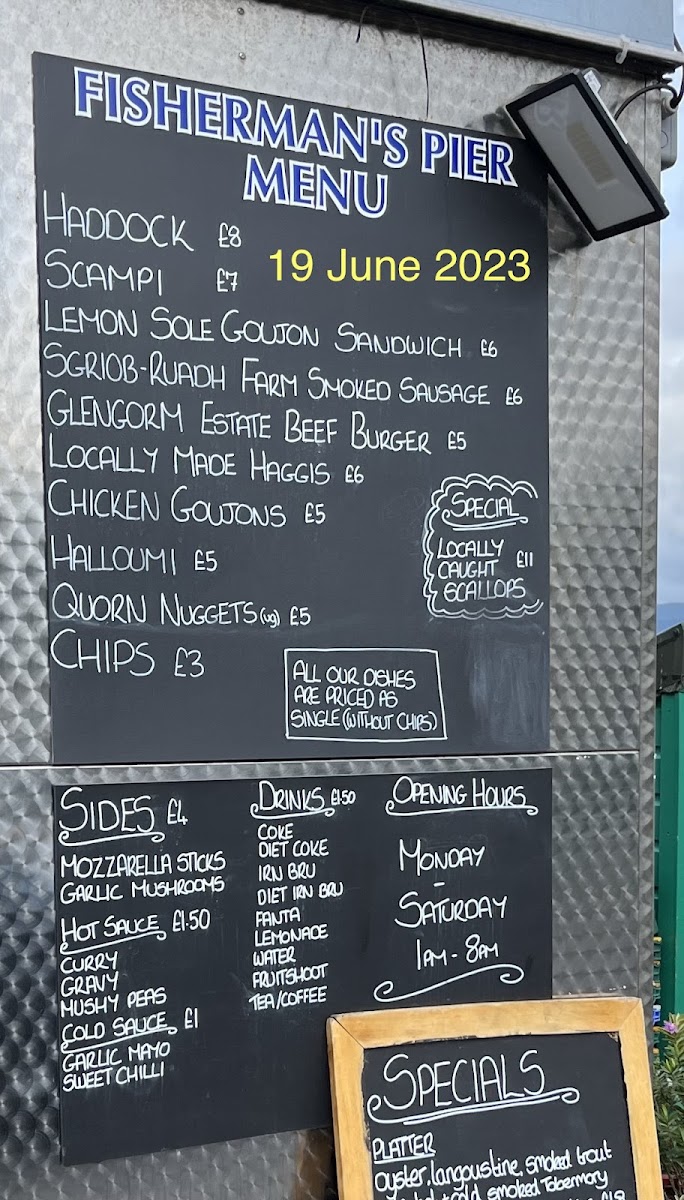 FISHERMAN'S PIER
MENU
HADDOCK £8
19 June 2023
SCAMPI £7
LEMON SOLE GOUJON SANDWICH £6
SGRIOB-RUADH FARM SMOKED SAUSAGE £6
GLENGORM ESTATE BEEF BURGER £5
LOCALLY MADE HAGGIS £6
CHICKEN GOUJONS £5
HALLOUMI £5
QUORN NUGGETS (vg) £5
CHIPS £3
SPECIAL
LOCALLY
CAUGHT £11
SCALLOPS
ALL OUR DISHES
ARE PRICED AS
SINGLE (WITHOUT CHIPS)
SIDES £4
MOZZARELLA STICKS
GARLIC MUSHROOMS
HOT SAUCE £1.50
CURRY
GRAVY
MUSHY PEAS
COLD SAUCE £1
GARLIC MAYO
SWEET CHILLI
DRINKS £1.50
COKE
DIET COKE
IRN BRU
DIET IRN BRU
FANTA
LEMONADE
WATER
FRUITSHOOT
TEA/COFFEE
OPENING HOURS
MONDAY
-
SATURDAY
1AM - 8AM
SPECIALS
PLATTER
oyster, langoustine, smoked trout
smoked Tobermory